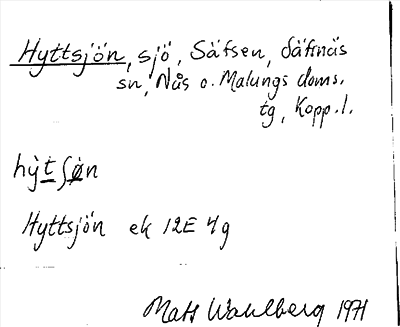 Hyttsjön, sjö, Säfsen, Säfsnäs
sn, Nås o. Malungs doms.
tg, Kopp. l.
hỳtʃøn
Hyttsjön ek 12E 4g
Mats Wahlberg 1971